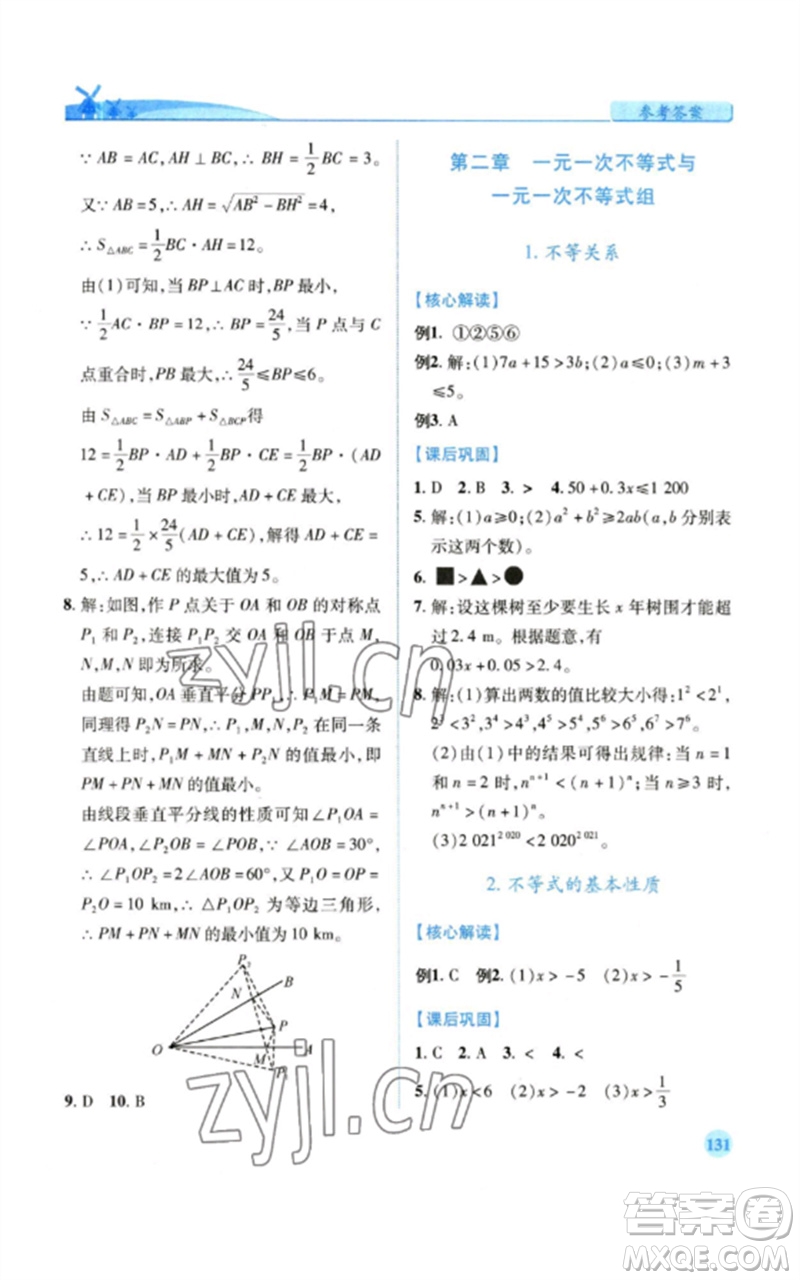 参考答案
∵ AB = AC, AH ⊥ BC, ∴ BH = 1/2 BC = 3.
又∵ AB = 5, ∴ AH = √(AB² − BH²) = 4,
∴ S△ABC = 1/2 BC · AH = 12。
由(1)可知,当 BP⊥AC 时,BP 最小,
∵ 1/2 AC · BP = 12, ∴ BP = 24/5, 当 P 点与 C
点重合时,PB 最大,∴ 24/5 ≤ BP ≤ 6。
由 S△ABC = S△ABP + S△BCP得
12 = 1/2 BP · AD + 1/2 BP · CE = 1/2 BP · (AD
+ CE),当 BP 最小时,AD + CE 最大,
∴ 12 = 1/2 × 24/5 (AD + CE),解得 AD + CE =
5,∴ AD + CE 的最大值为 5。
8. 解:如图,作 P 点关于 OA 和 OB 的对称点
P₁ 和 P₂,连接 P₁P₂ 交 OA 和 OB 于点 M,
N,M,N 即为所求。
由题可知,OA 垂直平分 PP₁,∴ P₁M = PM,
同理得 P₂N = PN,∴ P₁,M,N,P₂ 在同一条
直线上时,P₁M + MN + P₂N 的值最小,即
PM + PN + MN 的值最小。
由线段垂直平分线的性质可知 ∠P₁OA =
∠POA,∠P₂OB = ∠POB,∵ ∠AOB = 30°,
∴ ∠P₁OP₂ = 2∠AOB = 60°,又 P₁O = OP =
P₂O = 10 km,∴ △P₁OP₂ 为等边三角形,
∴ PM + PN + MN 的最小值为 10 km。
P₂
B
N
P
O
M
A
P₁
9. D 10. B
第二章 一元一次不等式与
一元一次不等式组
1. 不等关系
【核心解读】
例1. ①②⑤⑥
例2. 解:(1)7a + 15 > 3b;(2)a ≤ 0;(3)m + 3
≤ 5。
例3. A
【课后巩固】
1. D 2. B 3. > 4. 50 + 0.3x ≤ 1 200
5. 解:(1)a ≥ 0;(2)a² + b² ≥ 2ab(a,b 分别表
示这两个数)。
6. ■ > ▲ > ●
7. 解:设这棵树至少要生长 x 年树围才能超
过 2.4 m。根据题意,有
0.03x + 0.05 > 2.4。
8. 解:(1)算出两数的值比较大小得:1² < 2¹,
2³ < 3²,3⁴ > 4³,5⁶ > 6⁵,6⁷ > 7⁶。
(2)由(1)中的结果可得出规律:当 n = 1
和 n = 2 时,nⁿ⁺¹ < (n + 1)ⁿ;当 n ≥ 3 时,
nⁿ⁺¹ > (n + 1)ⁿ。
(3)2 021²⁰²⁰ < 2 020²⁰²¹。
2. 不等式的基本性质
【核心解读】
例1. C 例2. (1)x > −5 (2)x > −1/5
【课后巩固】
1. C 2. A 3. < 4. <
5. (1)x < 6 (2)x > −2 (3)x > 1/3
131
zyjl.cn
zyjl.cn
答案圈
MXQE.COM